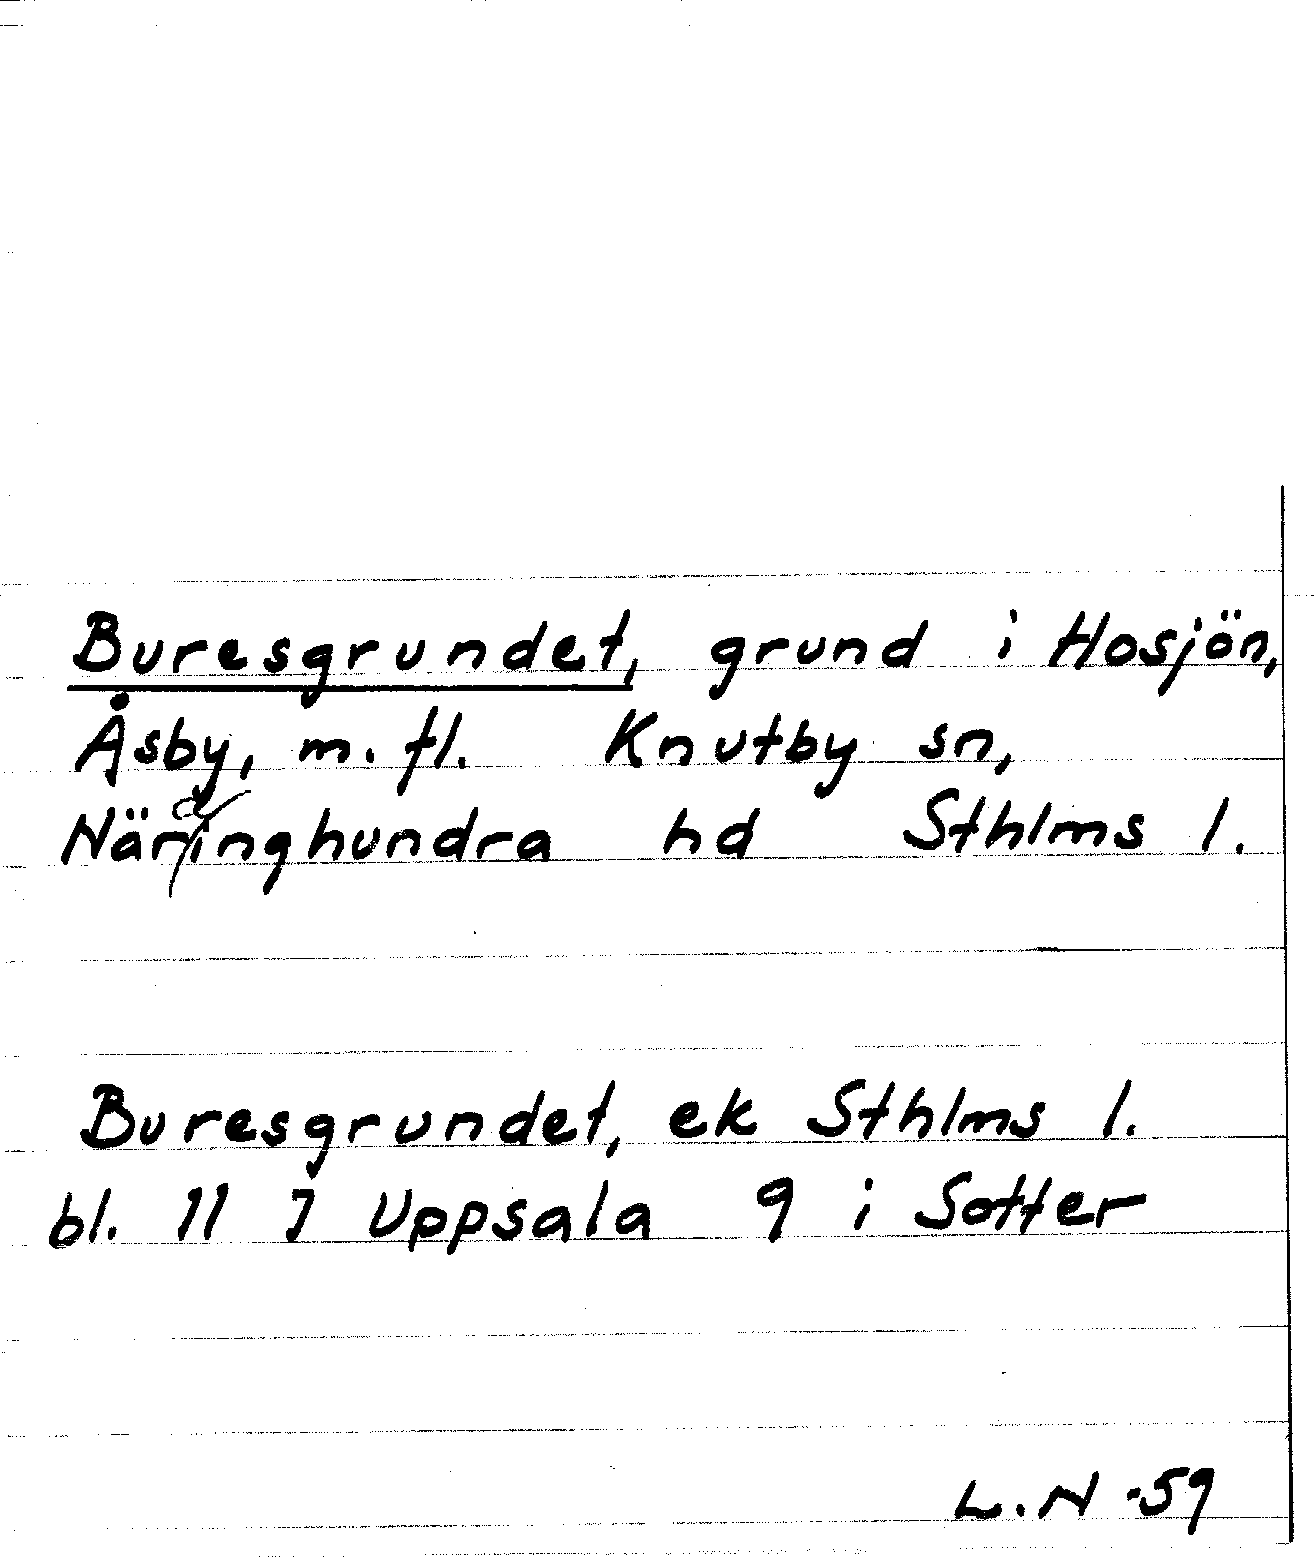 Buresgrundet, grund i Hosjön,
Åsby, m.fl. Knutby sn,
Närdinghundra hd Sthlms l.
Buresgrundet, ek Sthlms l.
bl. 11 I Uppsala 9 i Sotter
L.N -59